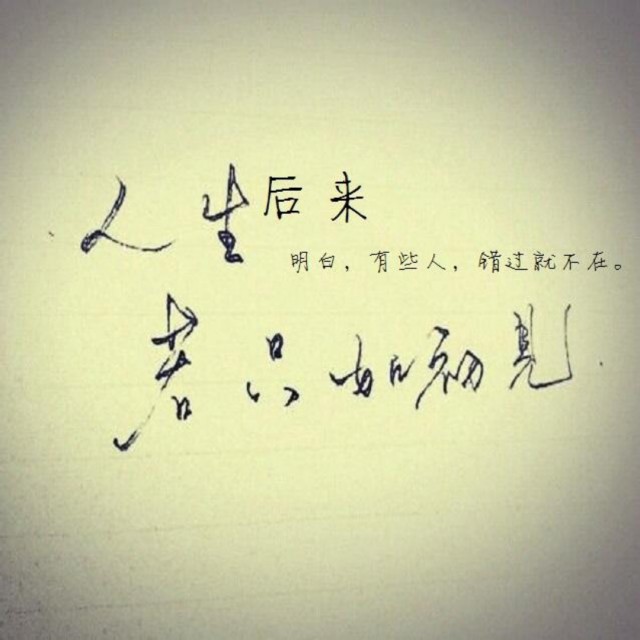 人生
后来
明白，有些人，错过就不在。
若只如初見.